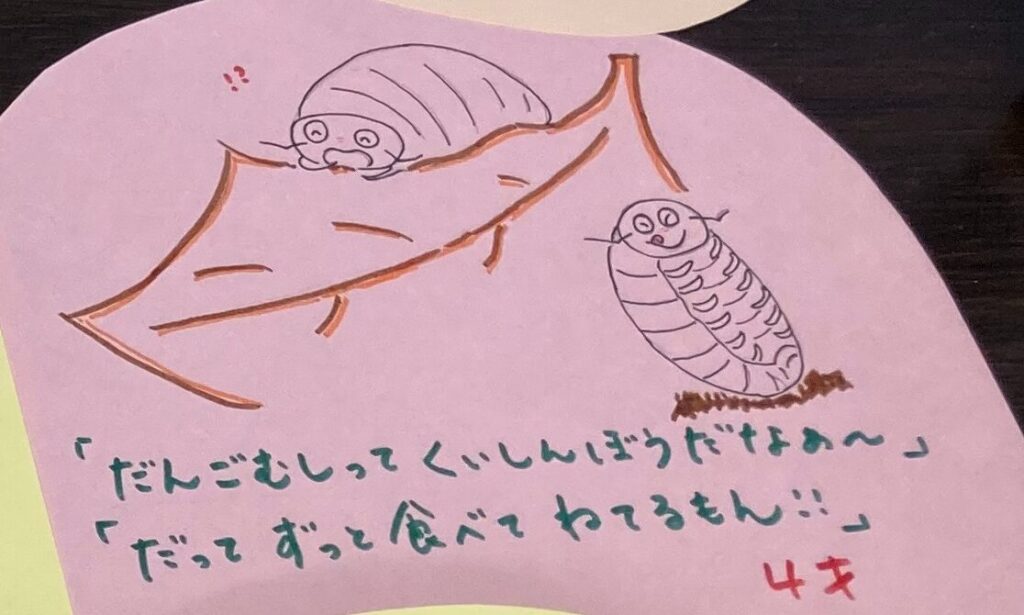 !?
「だんごむしって くいしんぼうだなぁ〜」
「だって ずっと 食べて ねてるもん!!」
4才